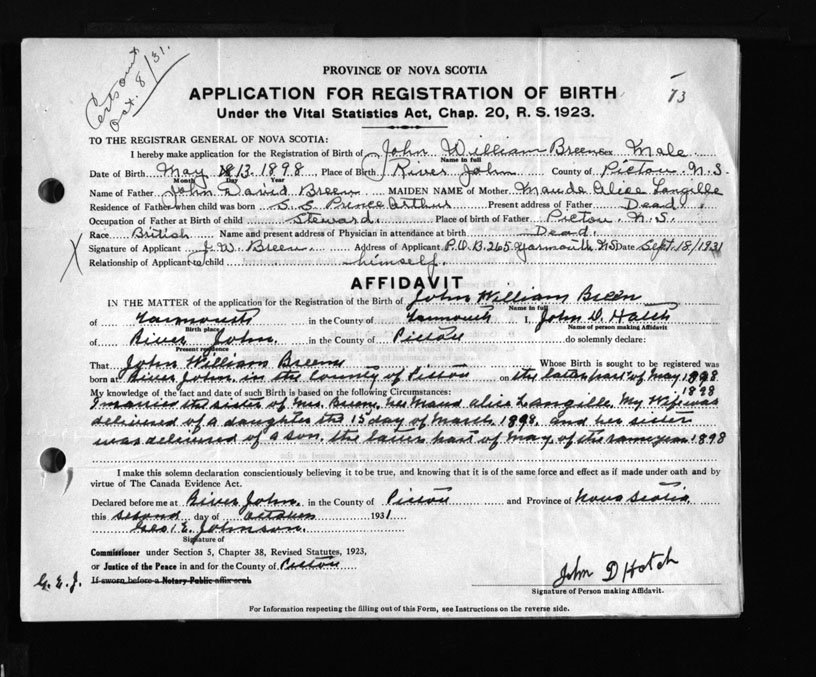 Cert sent
Oct. 8/31.
73
PROVINCE OF NOVA SCOTIA
APPLICATION FOR REGISTRATION OF BIRTH
Under the Vital Statistics Act, Chap. 20, R. S. 1923.
TO THE REGISTRAR GENERAL OF NOVA SCOTIA:
I hereby make application for the Registration of Birth of John William Breen Sex Male
Name in full
Date of Birth May 13. 1898 Place of Birth River John County of Pictou. N.S.
Month Day Year
Name of Father John David Breen MAIDEN NAME of Mother Maude Alice Langille
Residence of Father when child was born S.S Prince Arthur Present address of Father Dead.
Occupation of Father at Birth of child Steward. Place of birth of Father Pictou. N.S.
Race British Name and present address of Physician in attendance at birth Dead.
X Signature of Applicant J. W. Breen Address of Applicant P.O.B. 265 Yarmouth NS Date Sept. 18/1931
Relationship of Applicant to child himself.
AFFIDAVIT
IN THE MATTER of the application for the Registration of the Birth of John William Breen
Name in full
of Yarmouth in the County of Yarmouth I, John D. Hatch
Birth place Name of person making Affidavit
of River John. in the County of Pictou do solemnly declare:
Present residence
That John William Breen Whose Birth is sought to be registered was
born at River John. in the County of Pictou on the later part of May 1898
1898
My knowledge of the fact and date of such Birth is based on the following Circumstances:
I married the sister of Mrs. Breen, nee Maud Alice Langille. My Wife was
delivered of a daughter the 15 day of March 1898. and her sister
was delivered of a son, the latter part of May of the same year 1898
I make this solemn declaration conscientiously believing it to be true, and knowing that it is of the same force and effect as if made under oath and by
virtue of The Canada Evidence Act.
Declared before me at River John. in the County of Pictou and Province of Nova Scotia.
this second day of October 1931
Geo. E. Johnson.
Signature of
Commissioner under Section 5, Chapter 38, Revised Statutes, 1923,
or Justice of the Peace in and for the County of Pictou
G.E.J. If sworn before a Notary Public affix seal
John D Hatch
Signature of Person making Affidavit.
For Information respecting the filling out of this Form, see Instructions on the reverse side.